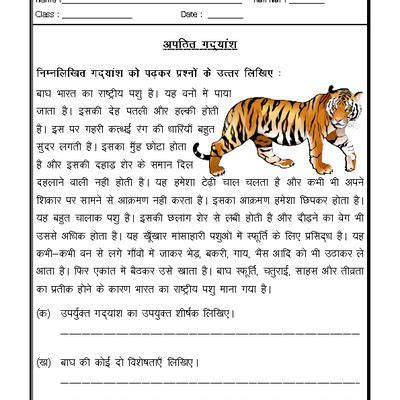 Class : Date :
अपठित गद्यांश
निम्नलिखित गद्यांश को पढ़कर प्रश्नों के उत्तर लिखिए :
बाघ भारत का राष्ट्रीय पशु है। यह वनो में पाया
जाता है। इसकी देह पतली और हल्की होती
है। इस पर गहरी कत्थई रंग की धारियाँ बहुत
सुंदर लगती है। इसका मुँह छोटा होता
है और इसकी दहाड़ शेर के समान दिल
दहलाने वाली नही होती है। यह हमेशा टेढ़ी चाल चलता है और कभी भी अपने
शिकार पर सामने से आक्रमण नही करता है। इसका आक्रमण हमेशा छिपकर होता है।
यह बहुत चालाक पशु है। इसकी छलांग शेर से लंबी होती है और दौड़ने का वेग भी
उससे अधिक होता है। यह खूँखार मांसाहारी पशुओं में स्फूर्ति के लिए प्रसिद्ध है। यह
कभी–कभी वन से लगे गाँवों में जाकर भेड़, बकरी, गाय, भैंस आदि को भी उठाकर ले
आता है। फिर एकांत में बैठकर उसे खाता है। बाघ स्फूर्ति, चतुराई, साहस और तीव्रता
का प्रतीक होने के कारण भारत का राष्ट्रीय पशु माना गया है।
(क) उपर्युक्त गद्यांश का उपयुक्त शीर्षक लिखिए।
(ख) बाघ की कोई दो विशेषताएँ लिखिए।